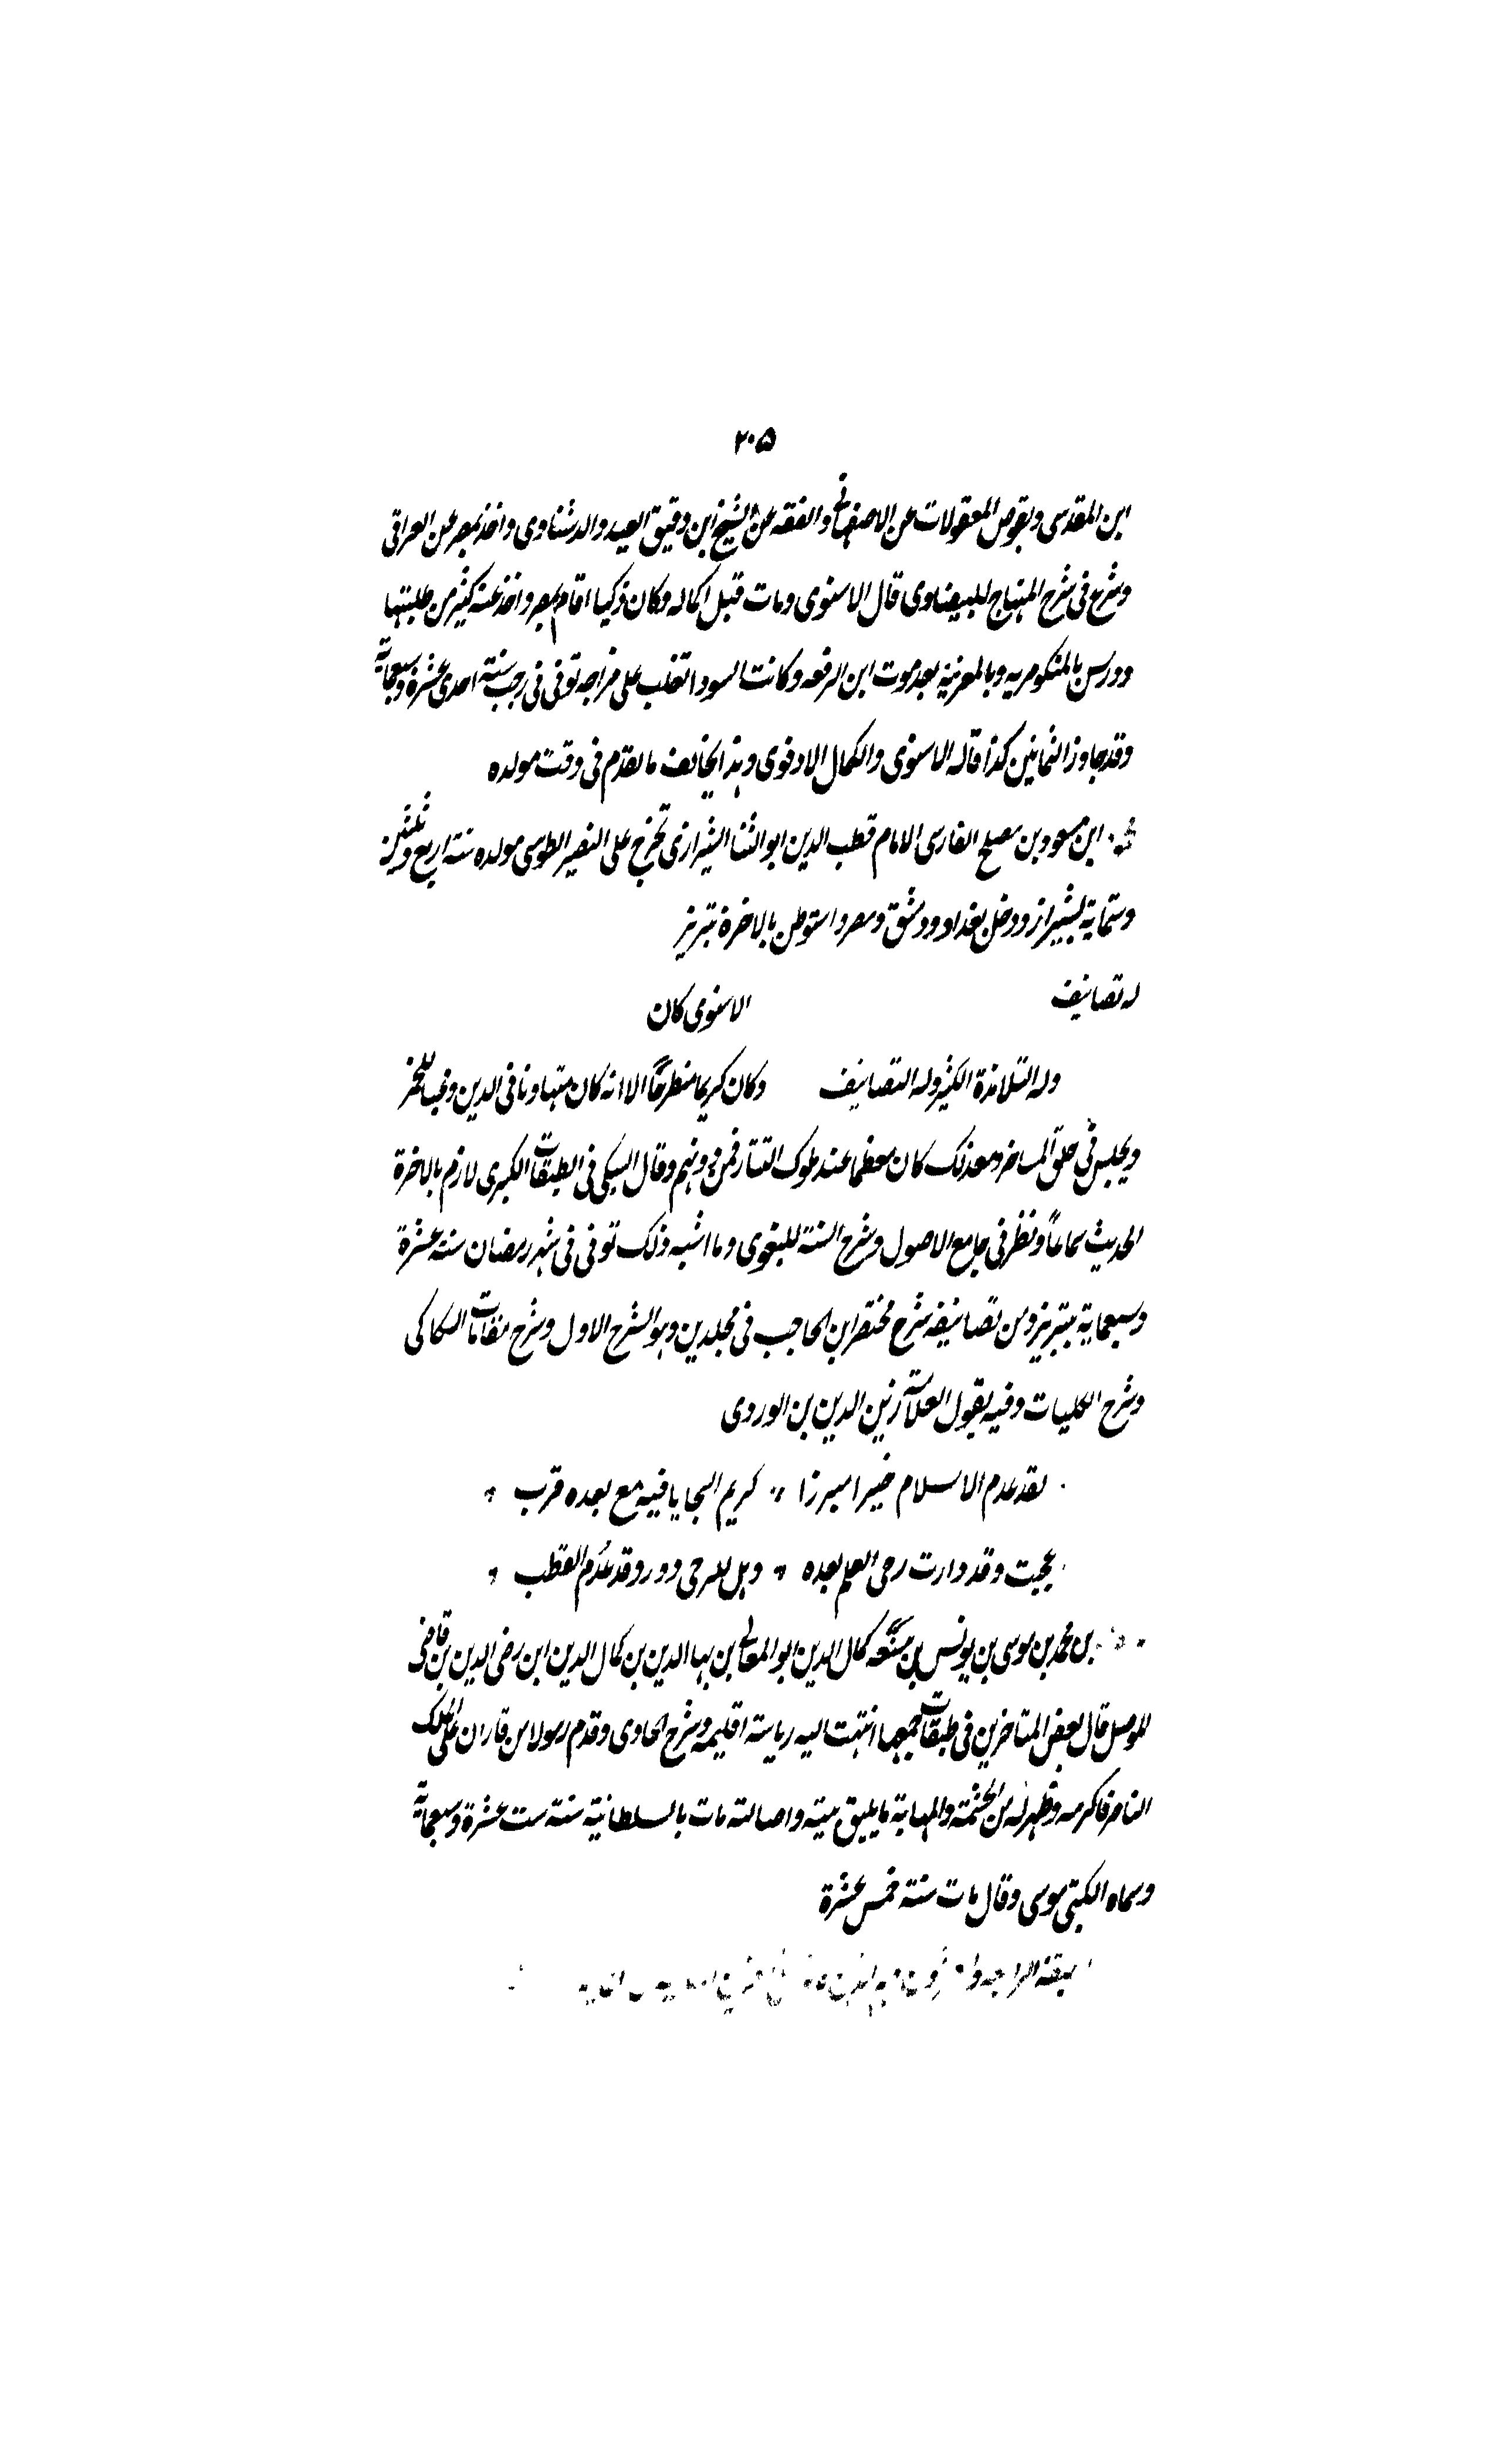 ٢٠٥
ابن المقدسي وبقوص المعقولات عن الاصفهاني والفقه عن الشيخ ابن دقيق العيد والدشناوى واخذ بمصر عن العراقى
وشرع فى شرح المنهاج للبيضاوى قال الاسنوى ومات قبل اكماله وكان ذكيا اقام بمصر واخذ عنه كثير من طلبتها
ودرس بالمنكومريه وبالمعزية بعد موت ابن الرفعه وكانت السودا تغلب على مزاجه توفى فى رجب سنة احدى عشرة وسبعماية
وقد جاوز الثمانين كذا قاله الاسنوى والكمال الادفوى وهذا يخالف ما تقدم فى وقت مولده
ابن مسعود بن مصلح الفارسى الامام قطب الدين ابو الثنا الشيرازى تخرج على النصير الطوسى مولده سنة اربع وثلثين
وستماية بشيراز ودخل بغداد ودمشق ومصر واستوطن بالاخرة تبريز
له تصانيف الاسنوى كان
وله التلامذة الكثيرة وله التصانيف وكان كريما منطرحًا الا انه كان متهاونا فى الدين ومحبا للخمر
ويجلس فى حلق المساخر ومع ذلك كان معظما عند ملوك التتار فمن دونهم وقال السبكى فى الطبقات الكبرى لازم بالاخرة
الحديث سماعًا ونظر فى جامع الاصول وشرح السنة للبغوى وما اشبه ذلك توفى فى شهر رمضان سنة عشرة
وسبعماية بتبريز ومن تصانيفه شرح مختصر ابن الحاجب فى مجلدين وهو الشرح الاول وشرح مفتاح السكاكى
وشرح الكليات وفيه يقول العلامة زين الدين بن الوردى
لقد عدم الاسلام خيرا مبرزا * كريم السجايا فيه مع بعده قرب *
عجبت وقد دارت رحى العلم بعده * وهل للرحى دور وقد عُدم القطب *
بن محمد بن موسى بن يونس بن منعه كمال الدين ابو المعالى بن بها الدين بن كمال الدين ابن رضى الدين بن قاضى
الموصل قال بعض المتاخرين فى طبقات جمعها انتهت اليه رياسة اقليمه وشرح الحاوى وقدم رسولا من قازان على الملك
الناصر فاكرمه وظهر له من الحشمة والمهابة ما يليق ببيته واصالته مات بالسلطانية سنة ست عشرة وسبعماية
وسماه الكتبى موسى وقال مات سنة خمس عشرة